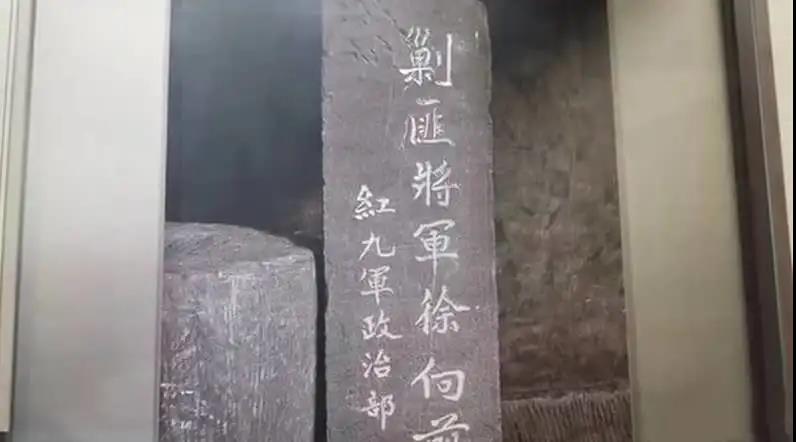 剿匪將軍徐向前
紅九軍政治部